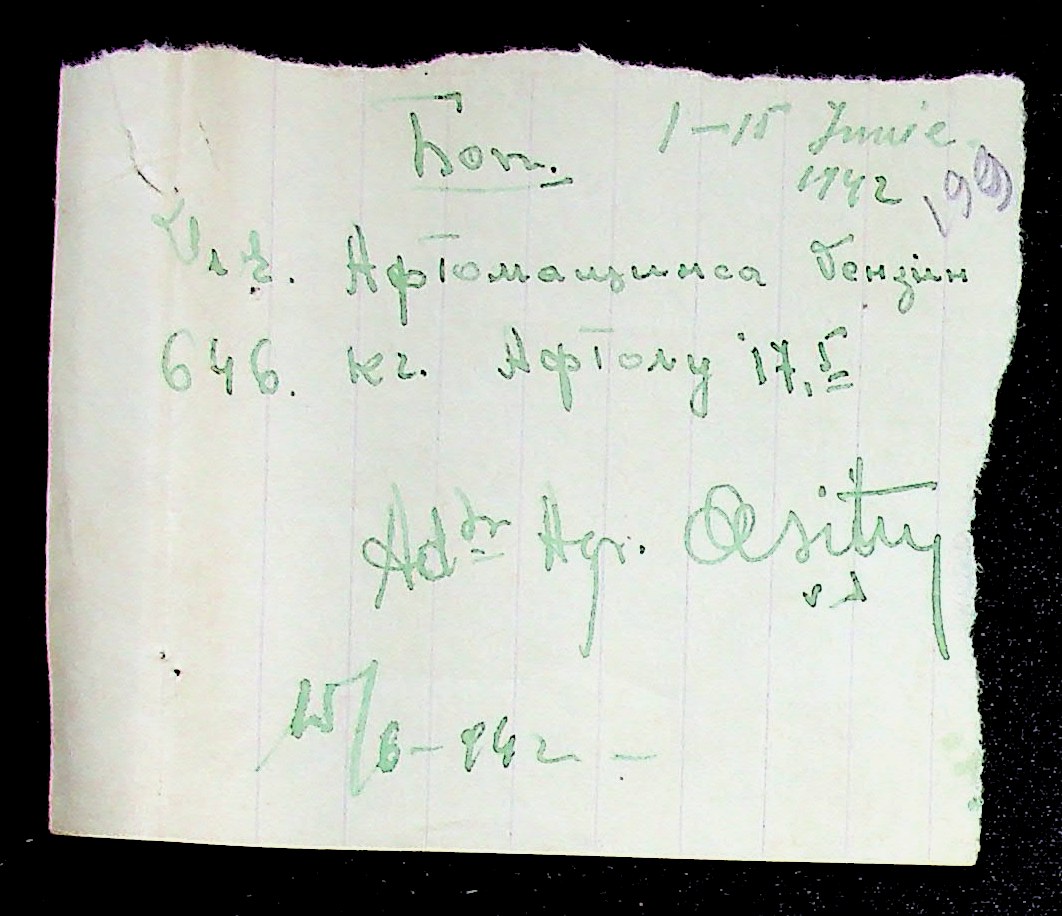 Бон. 1–15 Junie
1942 199
Для. Афтомашинса бензин
646. кг. Афтолу 17,5
Ad-ʳ Agr.
15/6-942 -